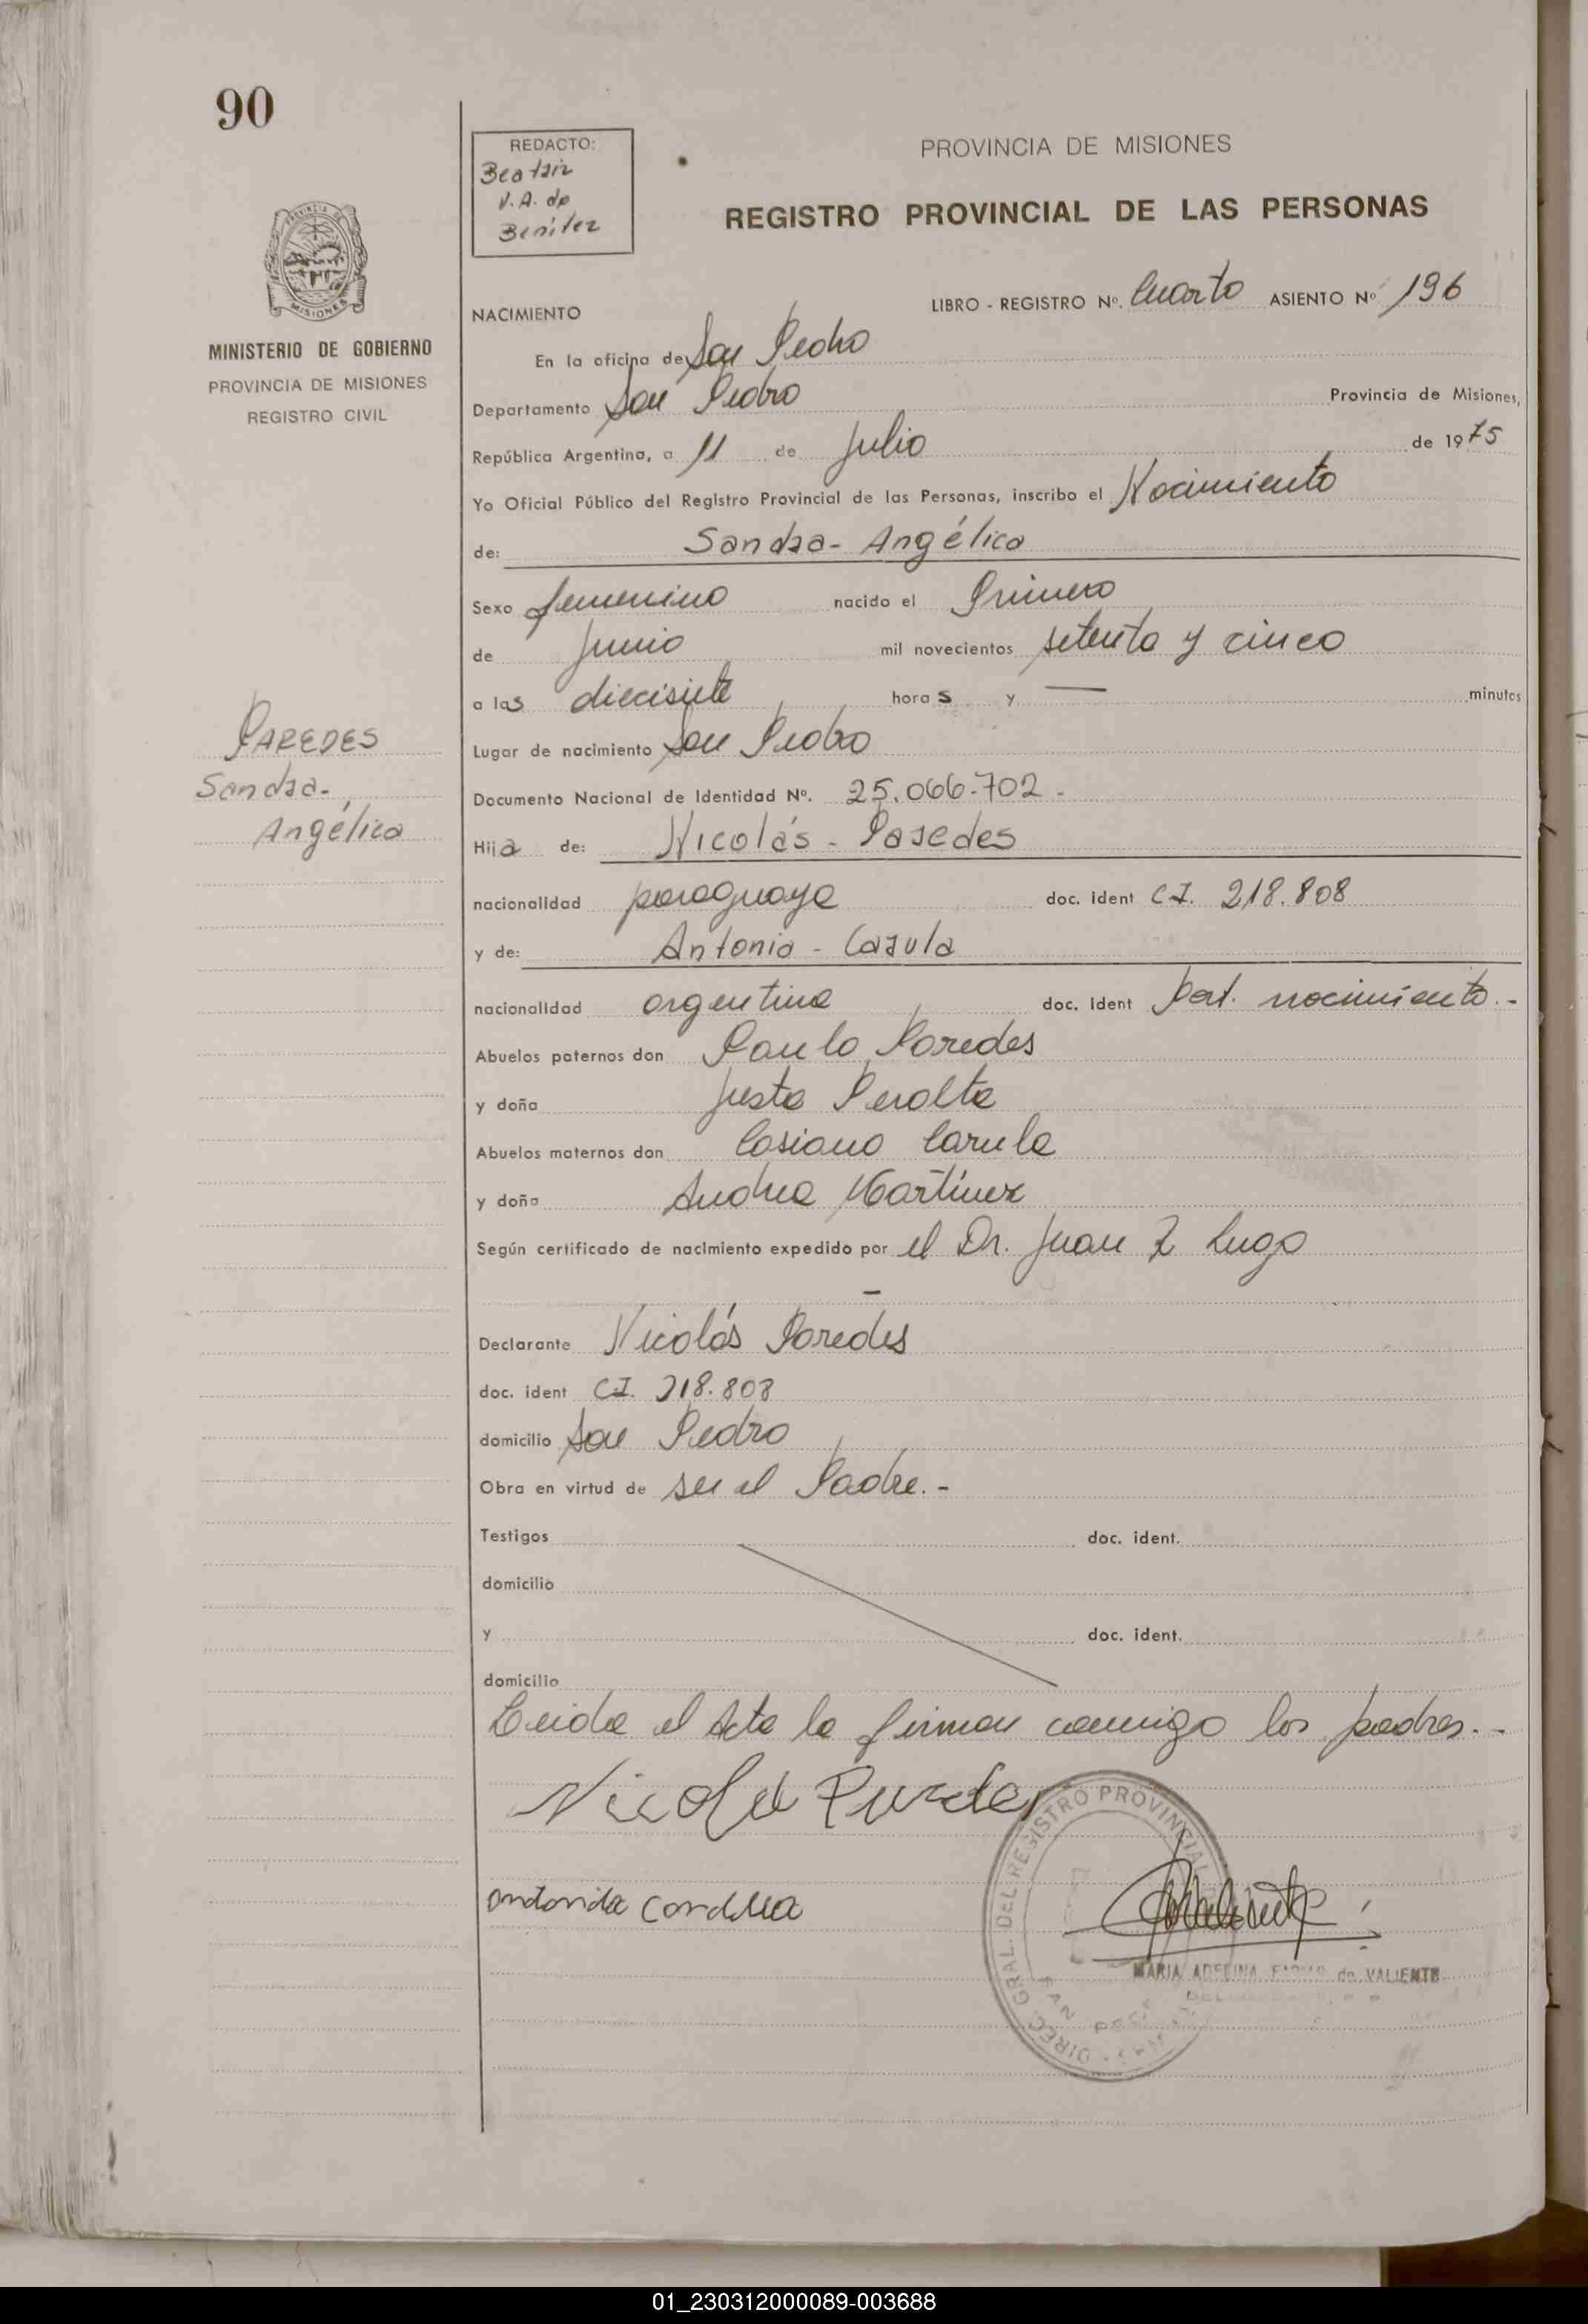 90
REDACTO:
Beatriz
V.A. de
Benítez
PROVINCIA DE MISIONES
REGISTRO PROVINCIAL DE LAS PERSONAS
MISIONES
MINISTERIO DE GOBIERNO
PROVINCIA DE MISIONES
REGISTRO CIVIL
NACIMIENTO
LIBRO - REGISTRO Nº. Cuarto ASIENTO Nº 196
En la oficina de San Pedro
Departamento San Pedro Provincia de Misiones,
República Argentina, a 11 de Julio de 1975
Yo Oficial Público del Registro Provincial de las Personas, inscribo el Nacimiento
de: Sandra - Angélica
Sexo femenino nacido el Primero
de Junio mil novecientos setenta y cinco
a las diecisiete horas y — minutos
Lugar de nacimiento San Pedro
PAREDES
Sandra -
Angélica
Documento Nacional de Identidad Nº. 25.066.702 -
Hija de: Nicolás - Paredes
nacionalidad paraguaya doc. ident C.I. 218.808
y de: Antonia - Carula
nacionalidad argentina doc. ident part. nacimiento.-
Abuelos paternos don Paulo Paredes
y doña Justa Peralta
Abuelos maternos don Casiano Carula
y doña Andrea Martínez
Según certificado de nacimiento expedido por el Dr. Juan Z Lugo
Declarante Nicolás Paredes
doc. ident C.I. 218.808
domicilio San Pedro
Obra en virtud de ser el Padre.-
Testigos doc. ident.
domicilio
y doc. ident.
domicilio
Leida el Acta la firman conmigo los padres.-
Nicolas Paredes
DIREC. GRAL. DEL REGISTRO PROVINCIAL
SAN PEDRO
MARIA ADELINA de VALIENTE